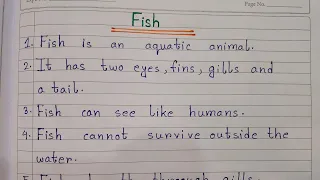 Page No.
Fish
1. Fish is an aquatic animal.
2. It has two eyes, fins, gills and
a tail.
3. Fish can see like humans.
4. Fish cannot survive outside the
water.
5. Fish through gills.